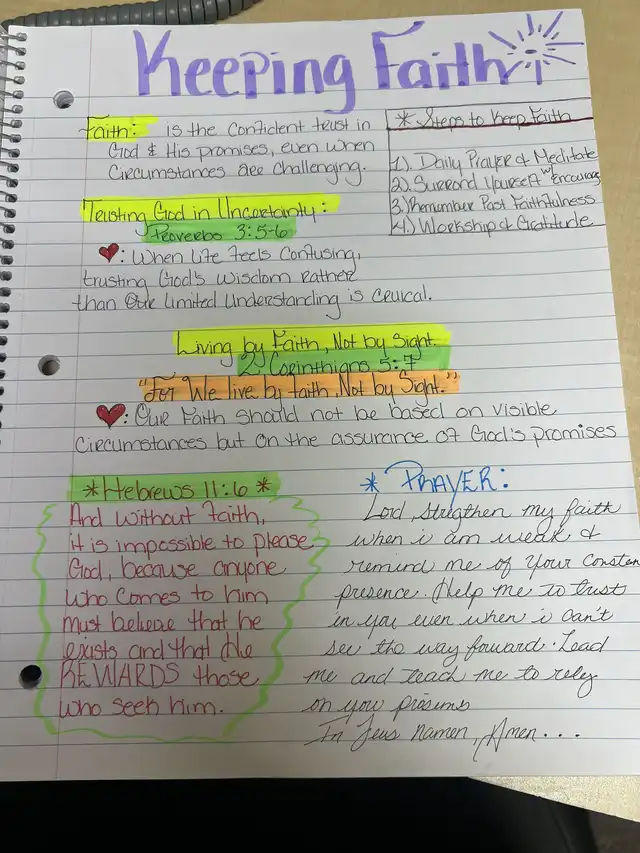 Keeping Faith
Faith: is the confident trust in
God & His promises, even when
Circumstances are challenging.
* Steps to Keep Faith
1). Daily Prayer & Meditate
2). Surrond Yourself w/ Encourag
3.) Remember Past Faithfulness
4.) Workship & Gratitude
Trusting God in Uncertainty:
Proverbs 3:5-6
: When Life feels Confusing,
trusting God's Wisdom Rather
than Our Limited Understanding is Crucial.
Living by Faith, Not by Sight.
2 Corinthians 5:7
"For We live by faith, Not by Sight."
: Our Faith should not be based on visible
Circumstances but on the assurance of God's promises
* Hebrews 11:6 *
And without Faith,
it is impossible to please
God, because anyone
who comes to him
must believe that he
exists and that he
REWARDS those
who seek him.
* PRAYER:
Lord, stregthen my faith
when i am weak &
remind me of your constan
presence. Help me to trust
in you even when i can't
see the way forward. Lead
me and teach me to rely
on you promises
In Jeus Namen, Amen...